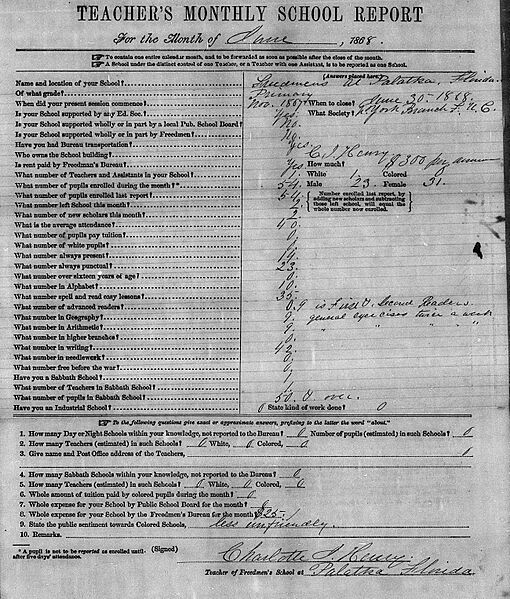 TEACHER'S MONTHLY SCHOOL REPORT
For the Month of June, 1868.
☞ To contain one entire calendar month, and to be forwarded as soon as possible after the close of the month.
☞ A School under the distinct control of one Teacher, or a Teacher with one Assistant, is to be reported as one School.
(Answers placed here)
Name and location of your School? Freedmens at Palatka, Florida.
Of what grade? Primary
When did your present session commence? Nov. 1867 When to close? June 30. 1868.
Is your Support supported by any Ed. Soc.? Yes. What Society? N. York Branch F. U. C.
Is your School supported wholly or in part by a local Pub. School Board? No
Is your School supported wholly or in part by Freedmen? No.
Have you had Bureau transportation? Yes
Who owns the School building? C. S. Henry
Is rent paid by Freedmen's Bureau? Yes How much? $300 per annum
What number of Teachers and Assistants in your School? 1. White 1 Colored
What number of pupils enrolled during the month?* 54. Male 23. Female 31.
What number of pupils enrolled last report? 54
Number enrolled last report, by adding new scholars and subtracting those left school, will equal the whole number now enrolled.
What number left School this month? 2
What number of new scholars this month? 2
What is the average attendance? 40.
What number of pupils pay tuition? 0
What number of white pupils?
What number always present? 19.
What number always punctual? 23.
What number over sixteen years of age? 0.
What number in Alphabet? 10.
What number spell and read easy lessons? 35.
What number of advanced readers? 9 in First & Second Readers
What number in Geography? 9. general exercises twice a week
What number in Arithmetic? 9 " " " "
What number in higher branches? 0.
What number in writing? 42.
What number in needlework? 0.
What number free before the war? 0.
Have you a Sabbath School? 1
What number of Teachers in Sabbath School?
What number of pupils in Sabbath School? 50. & over.
Have you an Industrial School? 0 State kind of work done? 0
☞ To the following questions give exact or approximate answers, prefixing to the latter the word "about."
1. How many Day or Night Schools within your knowledge, not reported to the Bureau? 0 Number of pupils (estimated) in such Schools? 0
2. How many Teachers (estimated) in such Schools? 0 White, 0 Colored, 0
3. Give name and Post Office address of the Teachers,
4. How many Sabbath Schools within your knowledge, not reported to the Bureau? 0
5. How many Teachers (estimated) in such Schools? 0 White, 0 Colored, 0
6. Whole amount of tuition paid by colored pupils during the month? 0
7. Whole expense for your School by Public School Board for the month?
8. Whole expense for your School by the Freedmen's Bureau for the month? $25.
9. State the public sentiment towards Colored Schools, less unfriendly.
10. Remarks.
* A pupil is not to be reported as enrolled until after five days' attendance.
(Signed) Charlotte S. Henry.
Teacher of Freedmen's School at Palatka Florida.